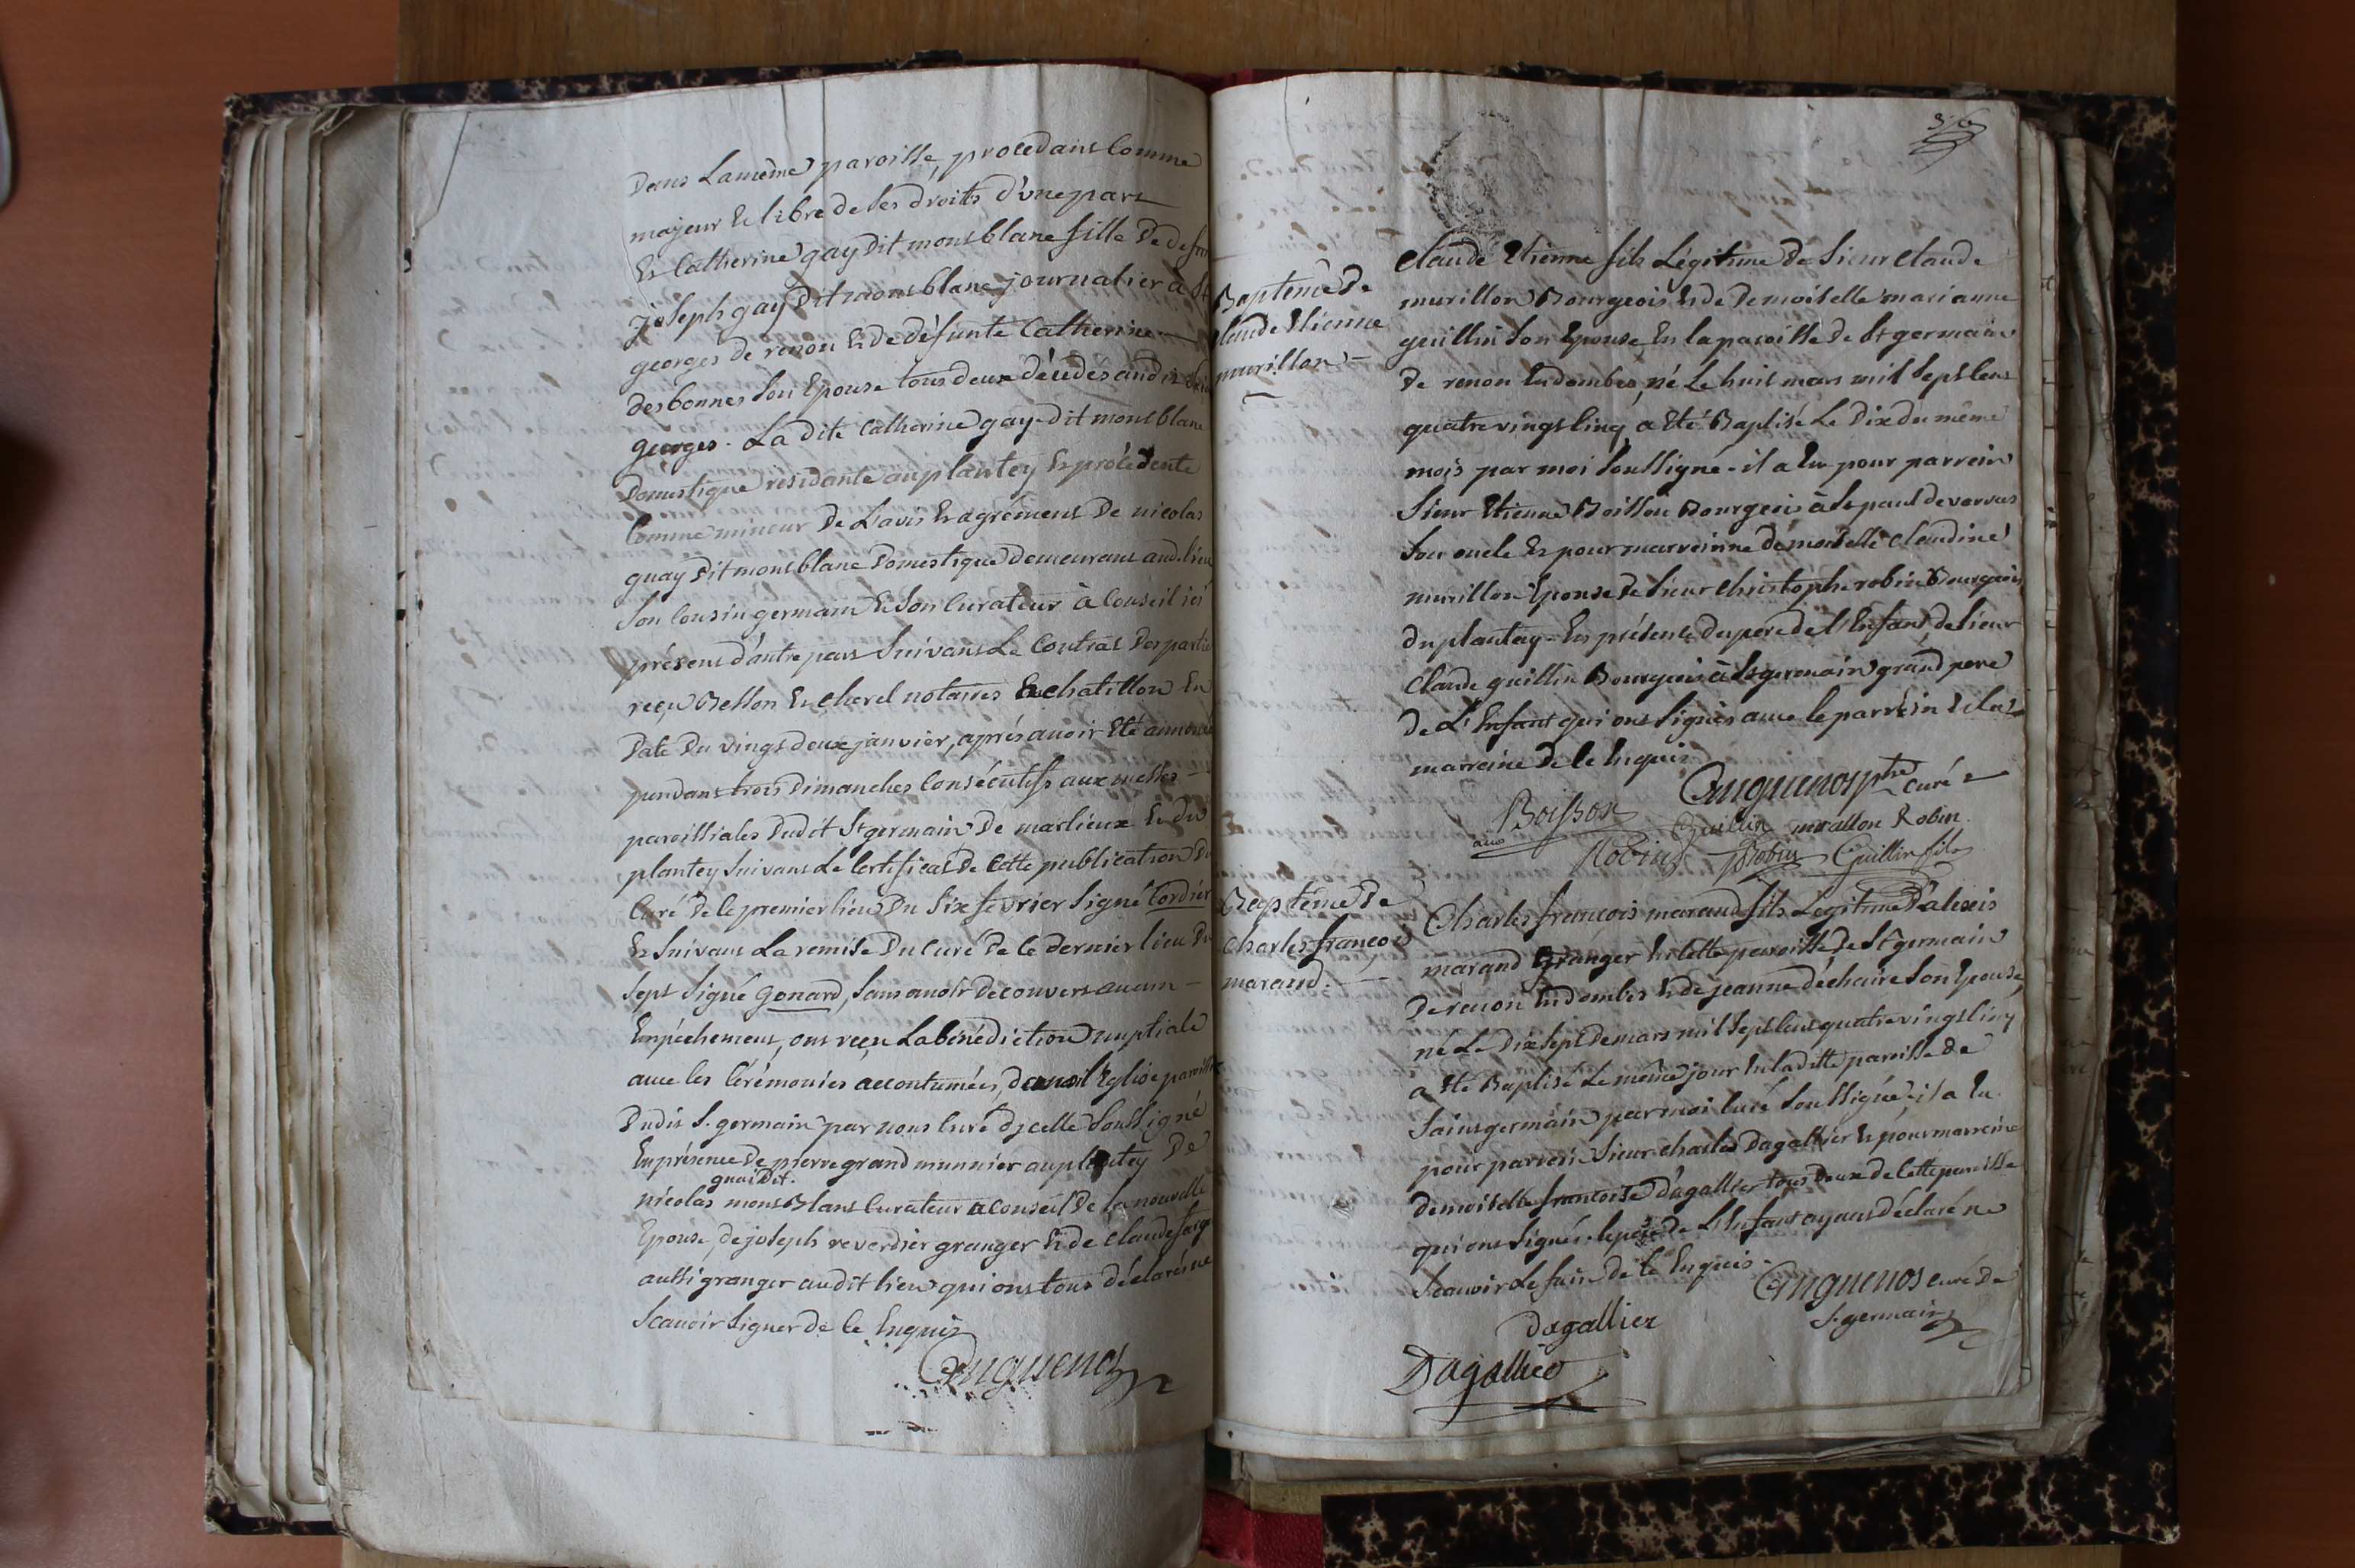 Dans La même paroisse, procedant Comme
majeur Et libre de ses droits d'une part
Et Catherine gay Dit montblanc fille De defunt
joseph gay Dit montblanc journalier à St
georges de renon Et de défunte Catherine
desbonnes son Epouse tous deux décédés audit Saint
georges. La dite Catherine gay Dit montblanc
Domestique résidante au plantey Et procédente
Comme mineur De L'avis Et agrément De nicolas
guay Dit montblanc Domestique demeurant aud. lieu
Son Cousin germain Et Son Curateur à Conseil ici
présent d'autre part Suivant Le Contrat Des parties
reçu Besson Et Cherel notaires à chatillon En
Date Du vingt deux janvier, après avoir Eté annoncé
pendant trois Dimanches Consécutifs aux messes
paroissiales Dudit St germain De marlieux Et du
plantey Suivant Le Certificat De Cette publication Du
Curé De Ce premier lieu Du Six fevrier Signé Cordier
Et Suivant La remise Du Curé De Ce dernier lieu Du
Sept Signé Gonard, Sans avoir Decouvert aucun
Empéchement, ont reçu La bénédiction nuptiale
avec les Cérémonies accoutumées, Dans L'Eglise paroissiale
Dudit S. germain par nous Curé D'icelle Soussigné
En présence De pierre grand munnier au plantey De
guai Dit.
nicolas mont Blanc Curateur a Conseil De la nouvelle
Epouse, de joseph reverdier granger Et de Claude farge
aussi granger audit lieu qui ont tous déclaré ne
Scavoir Signer de Ce Enquis
Cuguenos
376
Baptême De
Claude Etienne
murillon
Claude Etienne fils Légitime De Sieur Claude
murillon Bourgeois Et de Demoiselle marianne
guillin Son Epouse En la paroisse De St germain
De renon En dombes, né Le huit mars mil Sept Cent
quatre vingt Cinq a Eté Baptisé Le Dix du même
mois par moi Soussigné - il a Eu pour parrein
Sieur Etienne Boisson Bourgeois à St paul de varvas
Son oncle Et pour marreinne démoiselle Claudine
murillon Epouse De Sieur Christophe robin Bourgeois
du plantay - En présence Du pere de L'Enfant, de Sieur
Claude guillin Bourgeois à St germain grand pere
De L'Enfant qui ont Signés avec le parrein Et la
marreine De Ce Enquis
Cuguenos ptre Curé
Boisson
Guillin murallon Robin
Robin Robin Guillin fils
Baptême De
Charles françois
marand.
Charles françois marand fils Légitime D'alexis
marand Granger En Cette paroisse De St germain
De renon En dombes Et de jeanne déchaire Son Epouse,
né Le Dix Sept De mars mil Sept Cent quatre vingt Cinq
a Eté Baptisé Le même jour En la ditte paroisse de
Saint germain par moi Curé Soussigné, il a Eu
pour parrein Sieur charles Dagallier Et pour marreine
demoiselle francoise Dagallier tous Deux de Cette paroisse
qui ont Signés. le pere de L'Enfant ayant Déclaré ne
Scavoir Le faire De Ce Enquis.
Cuguenos curé De
S. germain
Dagallier
Dagallier